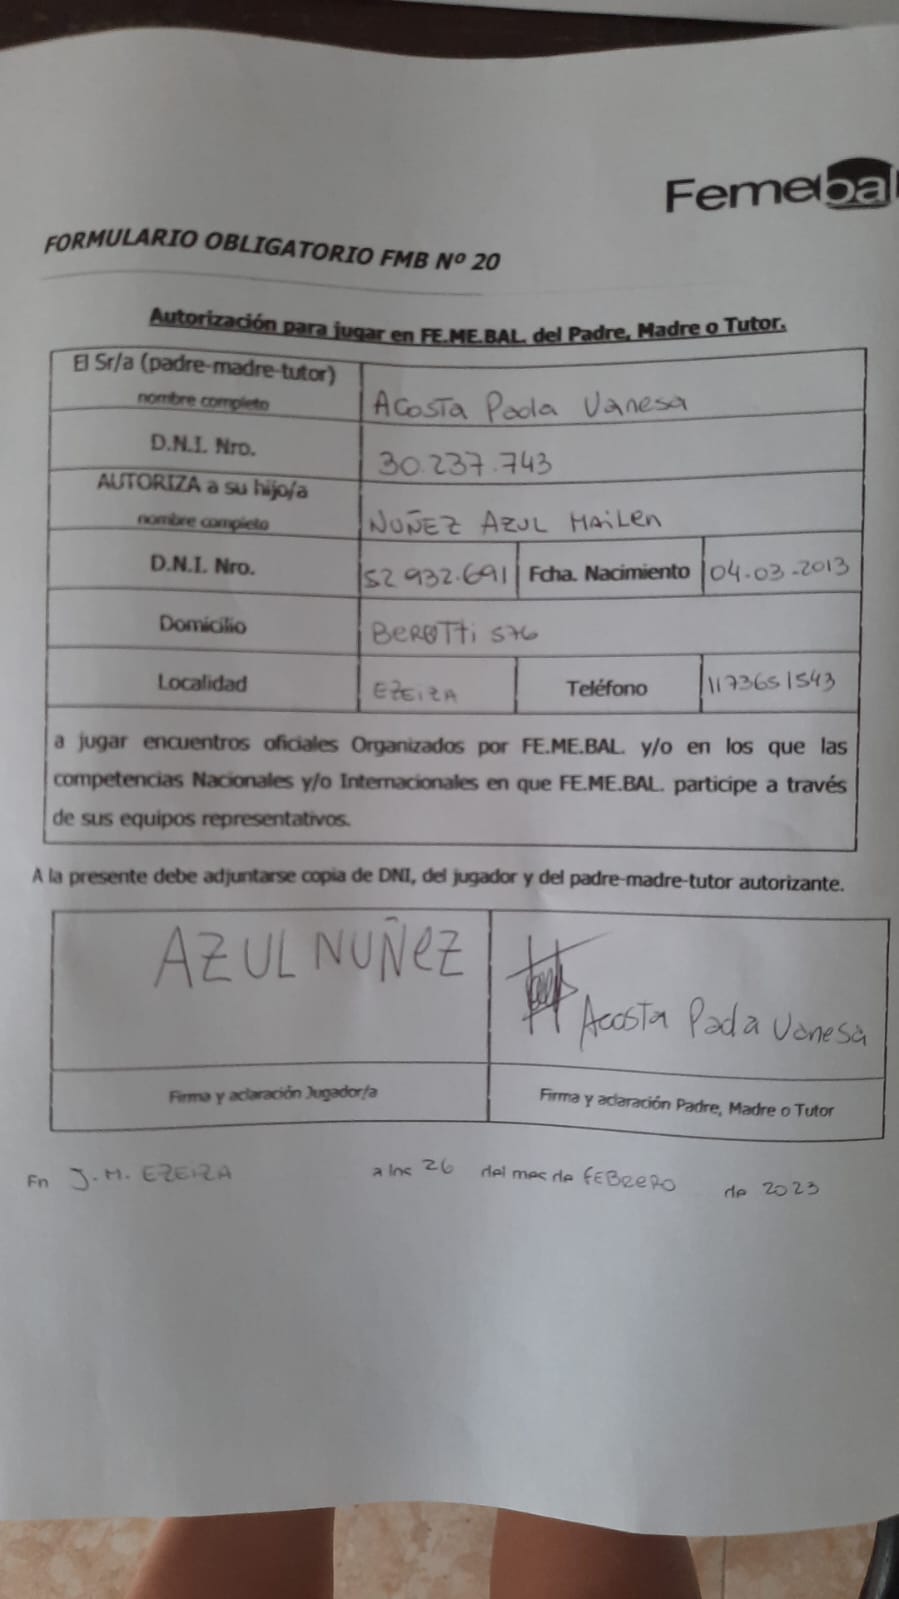 Femebal
FORMULARIO OBLIGATORIO FMB Nº 20
Autorización para jugar en FE.ME.BAL. del Padre, Madre o Tutor.
El Sr/a (padre-madre-tutor)
nombre completo
Acosta Paola Vanesa
D.N.I. Nro.
30.237.743
AUTORIZA a su hijo/a
nombre completo
NUÑEZ AZUL MAILEN
D.N.I. Nro.
52 932.691
Fcha. Nacimiento
04-03-2013
Domicilio
BEROTTI 576
Localidad
EZEIZA
Teléfono
1173651543
a jugar encuentros oficiales Organizados por FE.ME.BAL. y/o en los que las
competencias Nacionales y/o Internacionales en que FE.ME.BAL. participe a través
de sus equipos representativos.
A la presente debe adjuntarse copia de DNI, del jugador y del padre-madre-tutor autorizante.
AZUL NUÑEZ
Acosta Paola Vanesa
Firma y aclaración Jugador/a
Firma y aclaración Padre, Madre o Tutor
En J.M. EZEIZA a los 26 del mes de FEBRERO de 2023